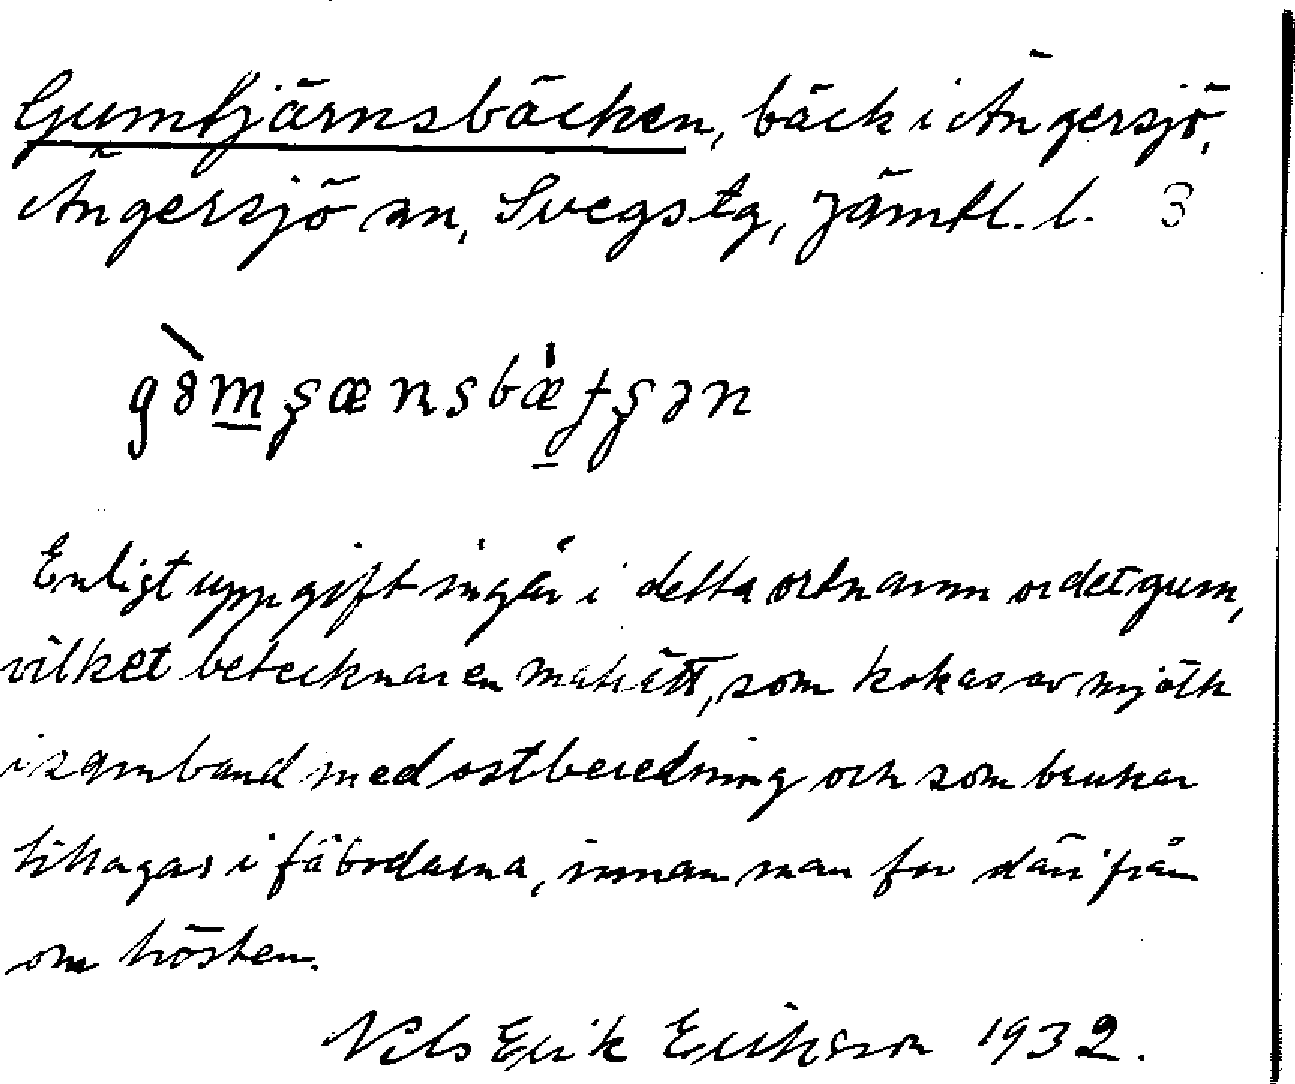 Gumtjärnsbäcken, bäck i Ängersjö,
Ängersjö sn, Svegs tg, Jämtl. l. 3
Enligt uppgift ingår i detta ortnamn ordet gum,
vilket betecknar en maträtt, som kokas av mjölk
i samband med ostberedning och som brukar
tillagas i fäbodarna, innan man for därifrån
om hösten.
Nils Erik Eriksson 1932.